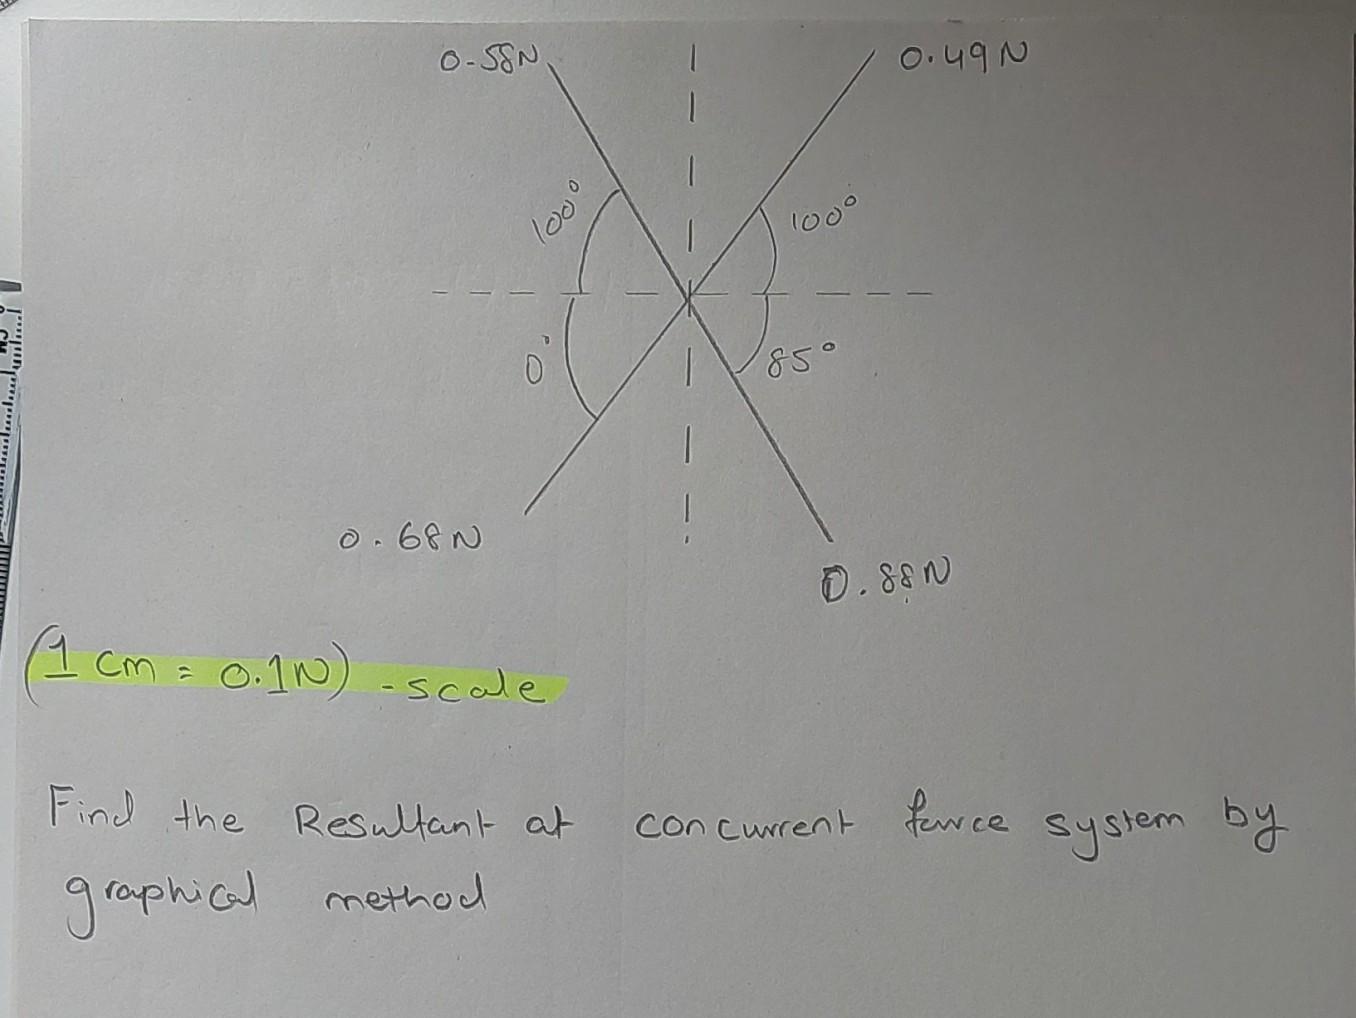 0.58N
0.49N
100°
100°
0°
85°
0.68N
0.88N
(1 cm = 0.1N) - scale
Find the Resultant at concurrent force system by
graphical method
CM